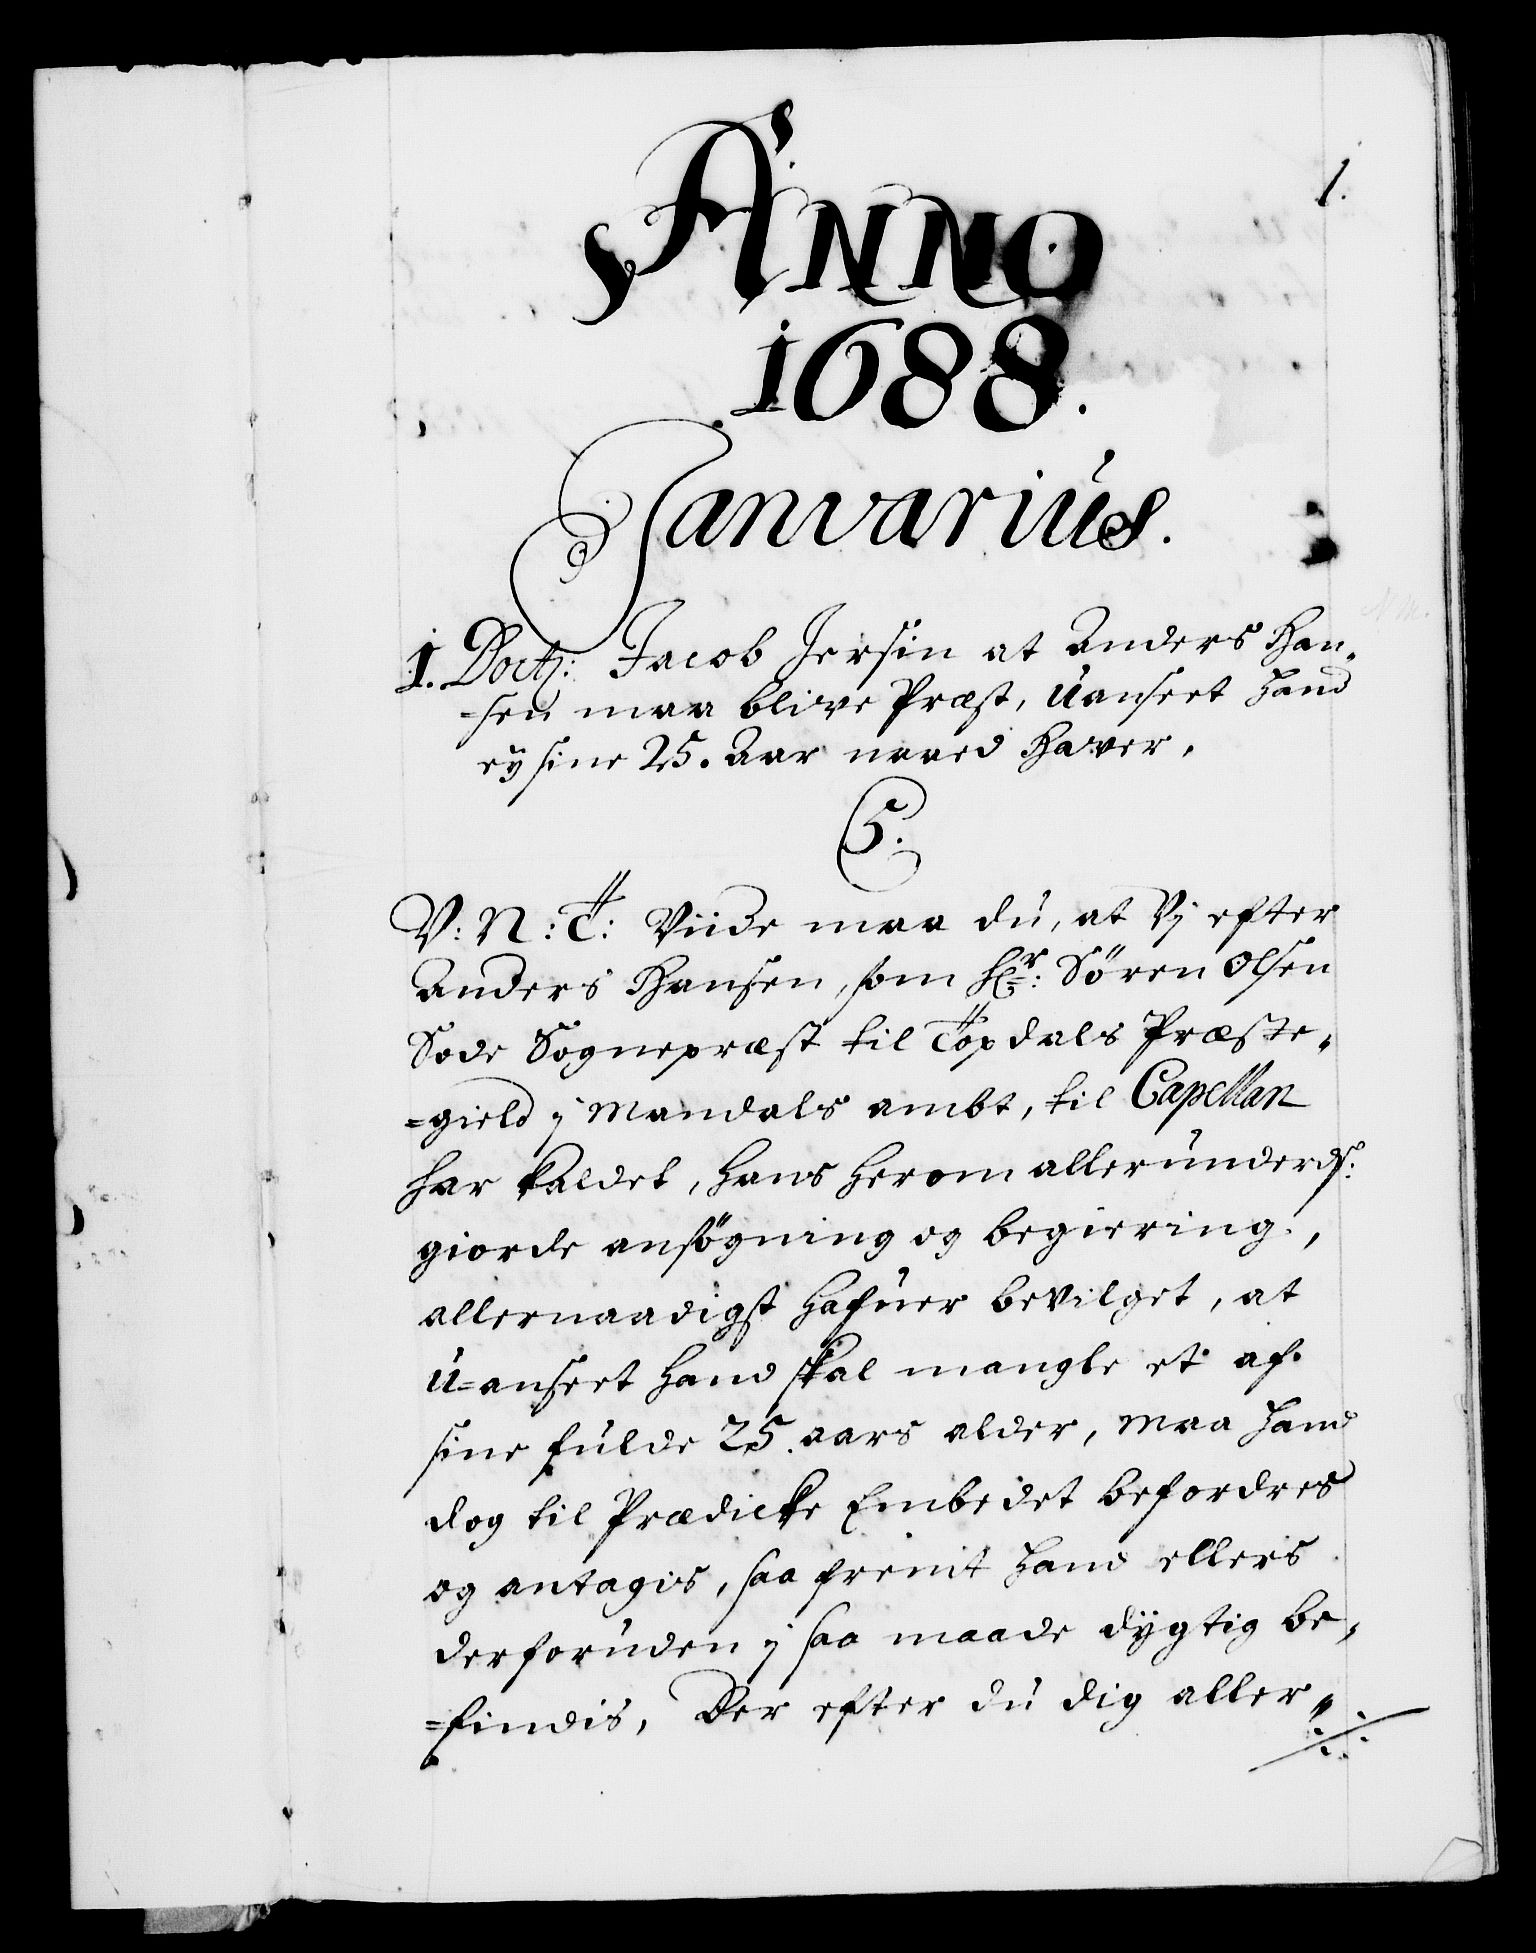 1.
ANNO
1688.
Janvariüs.
1. Doctr: Jacob Jersin at Anders Han,
=sen maa blive Præst, üanseet hand
eÿ sine 25. Aar naaed haver,
C5.
V: N: T: Viide maa dü, at Vj efter
Anders Hansen, som Hr: Sören Olsen
Sode Sognepræst til Topdals Præste,
=gield j Mandals ambt, til Capellan
har kaldet, hans herom alleründerds:
giorde ansögning og begiering,
allernaadigst hafuer bevilget, at
ü=anseet hand skal mangle et af
sine fulde 25. aars alder, maa hand
dog til Prædicke Embedet befordres
og antagis, saa fremt hand ellers
derforuden j saa maade dÿgtig be,
=findis, Der efter dü dig aller,,